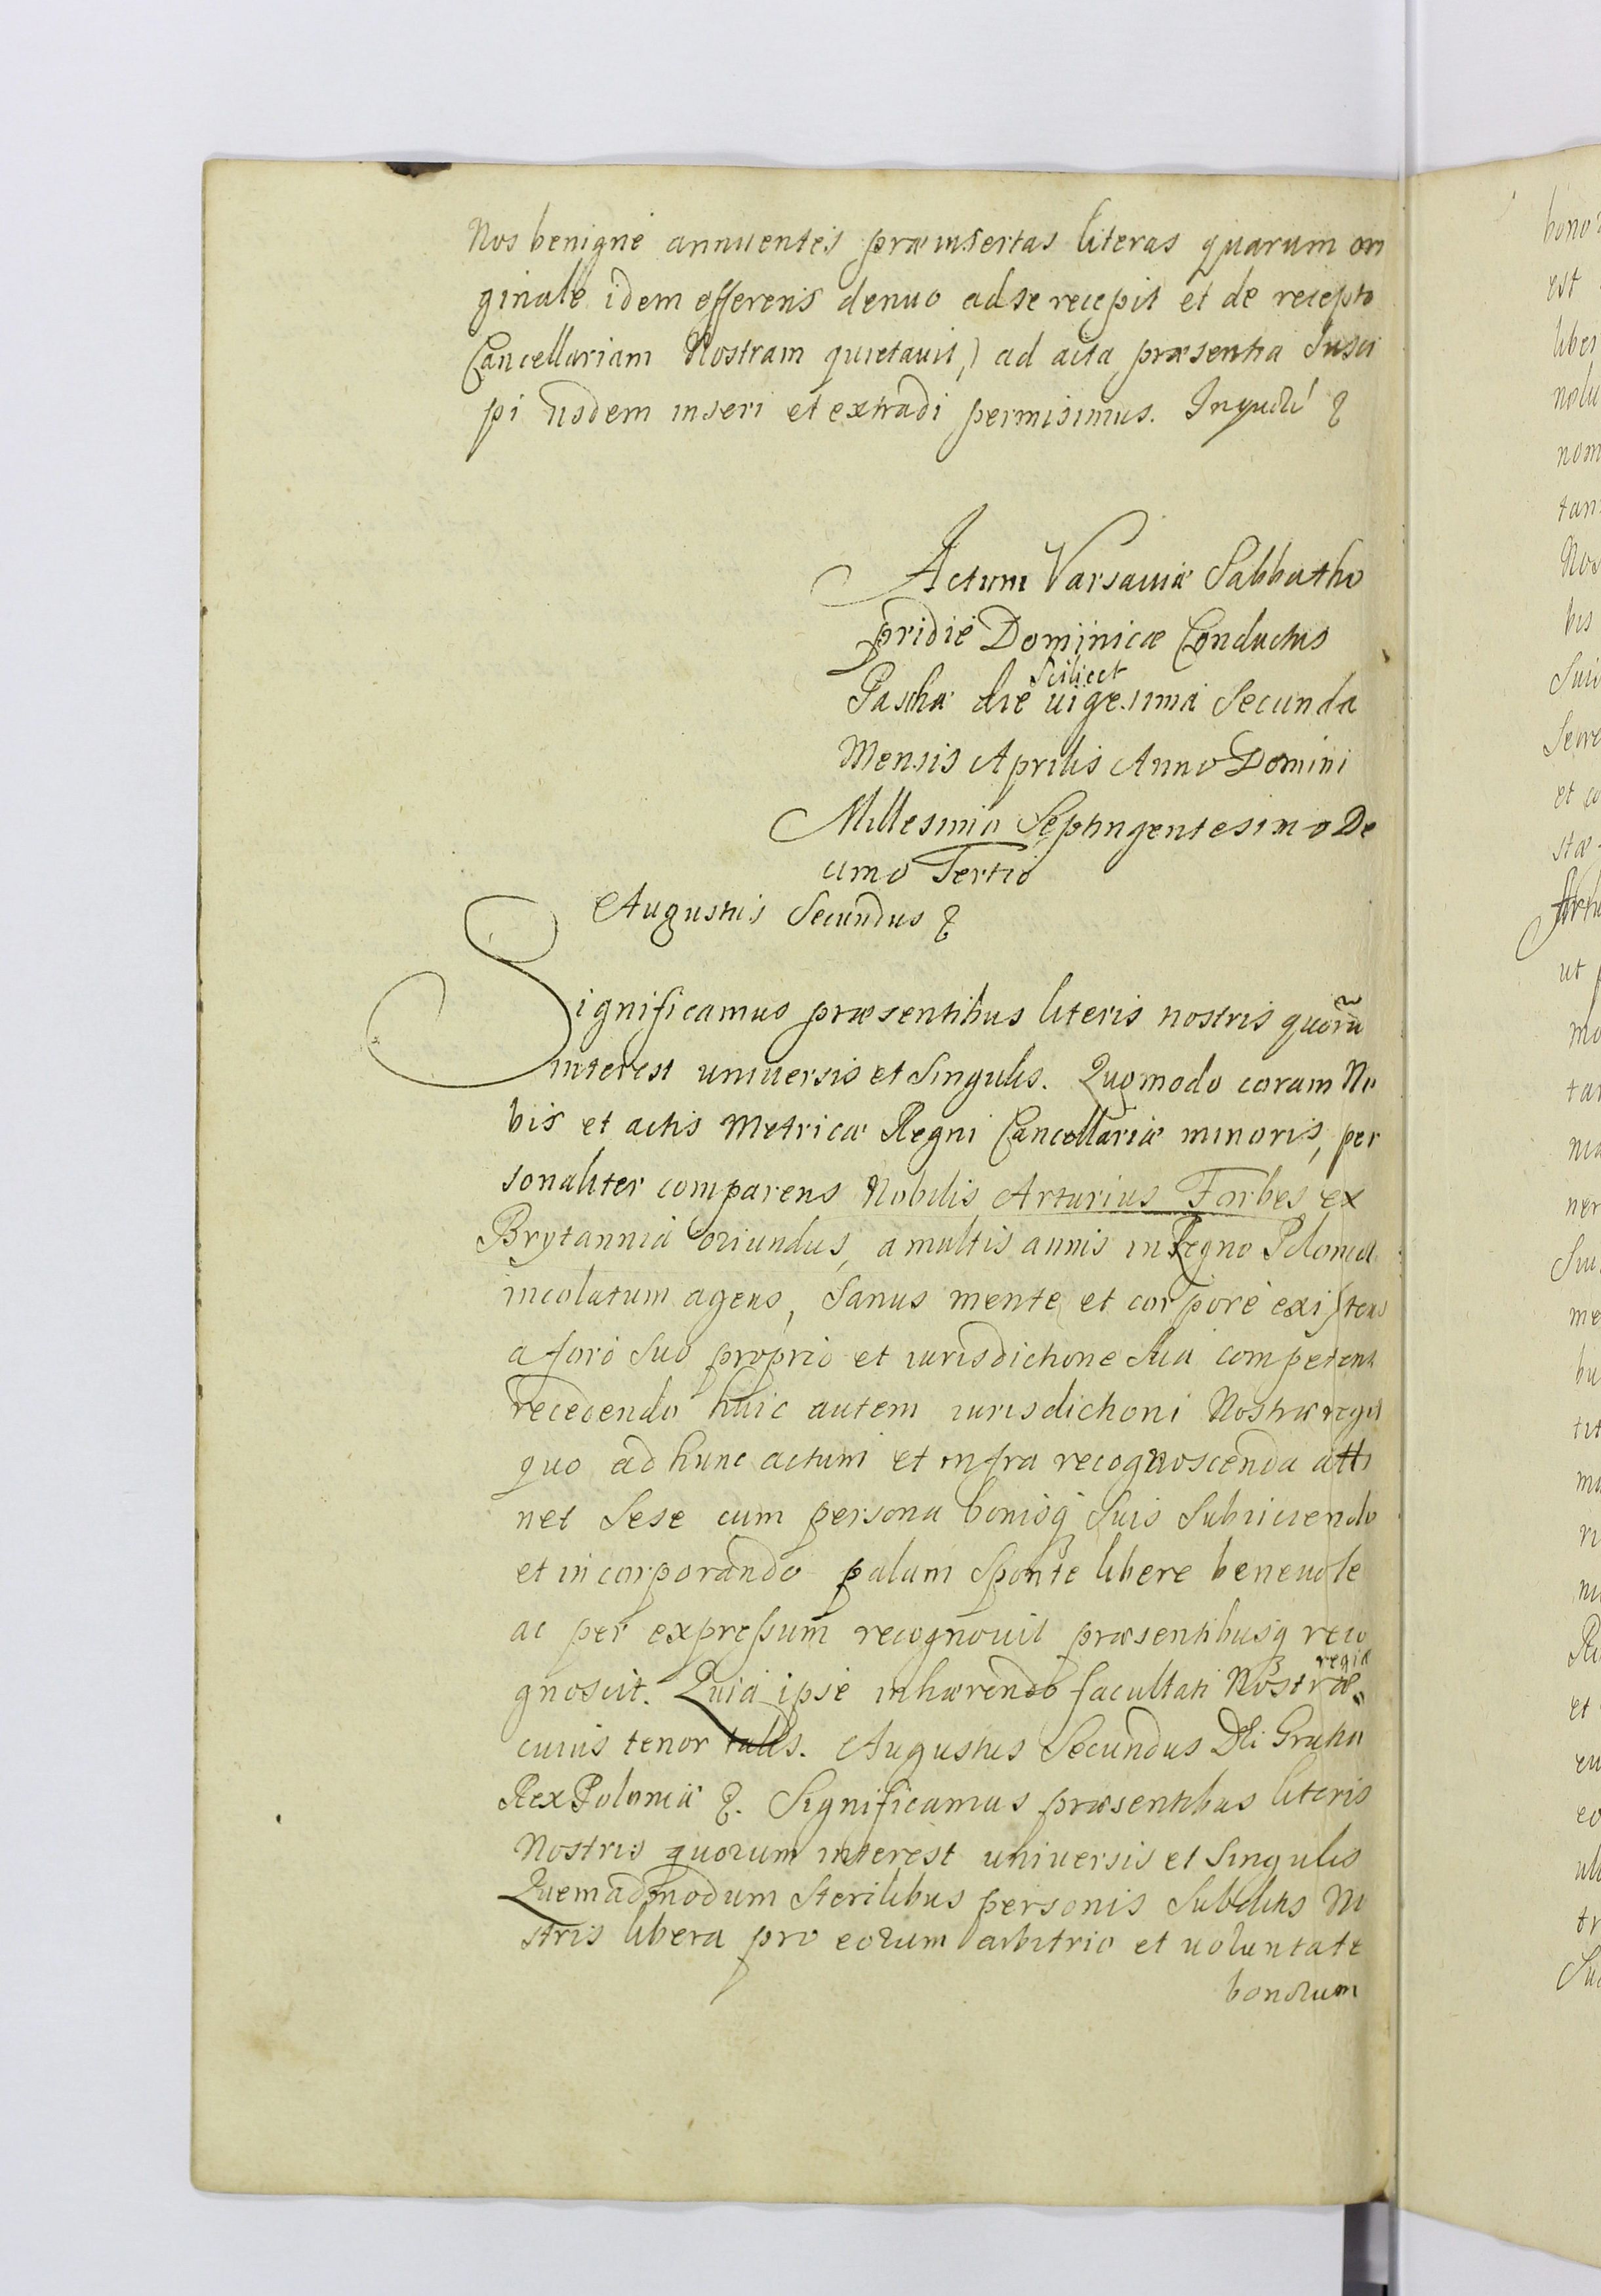 Nos benigne annuentes præinsertas literas quarum ori
ginale idem offerens denuo ad se recepit et de recepto
Cancellariam Nostram quietavit,) ad acta præsentia Susci
pi iisdem inseri et extradi permisimus. In quoru' &
Actum Varsaviæ Sabbatho
pridie Dominicæ Conductus
Paschæ die Scilicet vigesima Secunda
Mensis Aprilis Anno Domini
Millesimo Septingentesimo De
cimo Tertio
Augustus Secundus &
Significamus præsentibus literis nostris quorũ
interest universis et Singulis. Quomodo coram No
bis et actis Metricæ Regni Cancellariæ minoris, per
sonaliter comparens Nobilis Arturius Forbes ex
Brytannia oriundus, a multis annis in Regno Poloniæ
incolatum agens, Sanus mente et corpore existens
a foro Suo proprio et iurisdictione Sua competenti
recedendo huic autem iurisdictioni Nostræ regiæ
quo ad hunc actum et infra recognoscenda atti
net Sese cum persona bonisq Suis Subiiciendo
et incorporando palam Sponte libere benevole
ac per expressum recognovit præsentibusq reco
gnoscit. Quia ipse inhærendo facultati Nostræ regiæ
cuius tenor talis. Augustus Secundus Dei Gratia
Rex Poloniæ &. Significamus præsentibus literis
Nostris quorum interest universis et Singulis
Quemadmodum Sterilibus personis Subditis No
stris libera pro eorum arbitrio et voluntate
bonorum